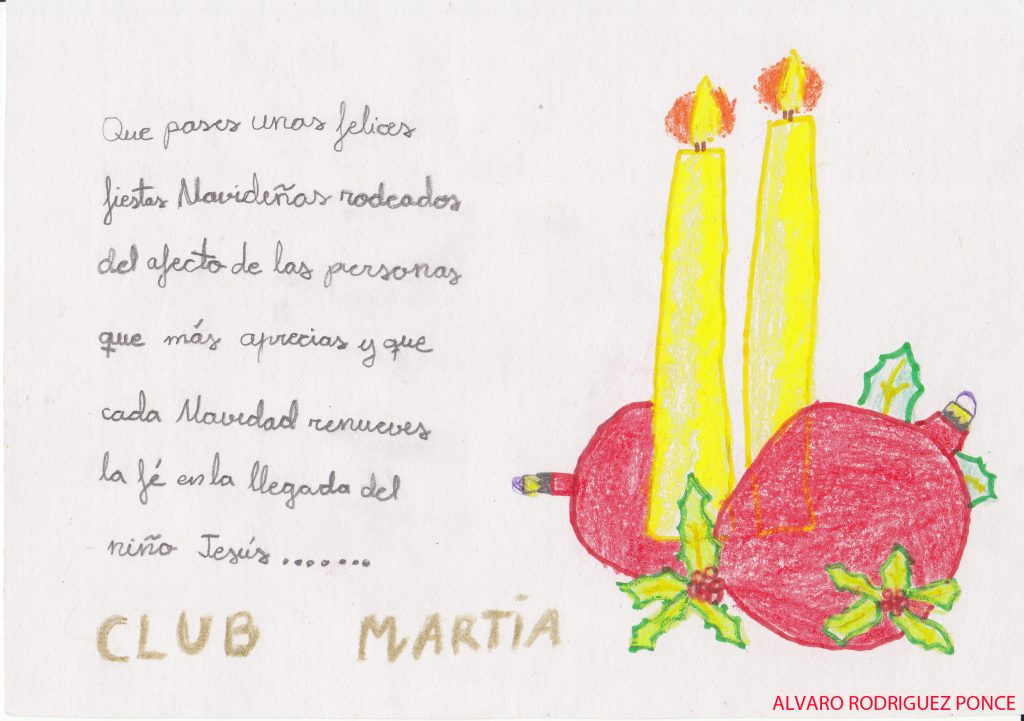 Que pases unas felices
fiestas Navideñas rodeados
del afecto de las personas
que más aprecias y que
cada Navidad renueves
la fé en la llegada del
niño Jesús.......
CLUB MARTiA
ALVARO RODRIGUEZ PONCE